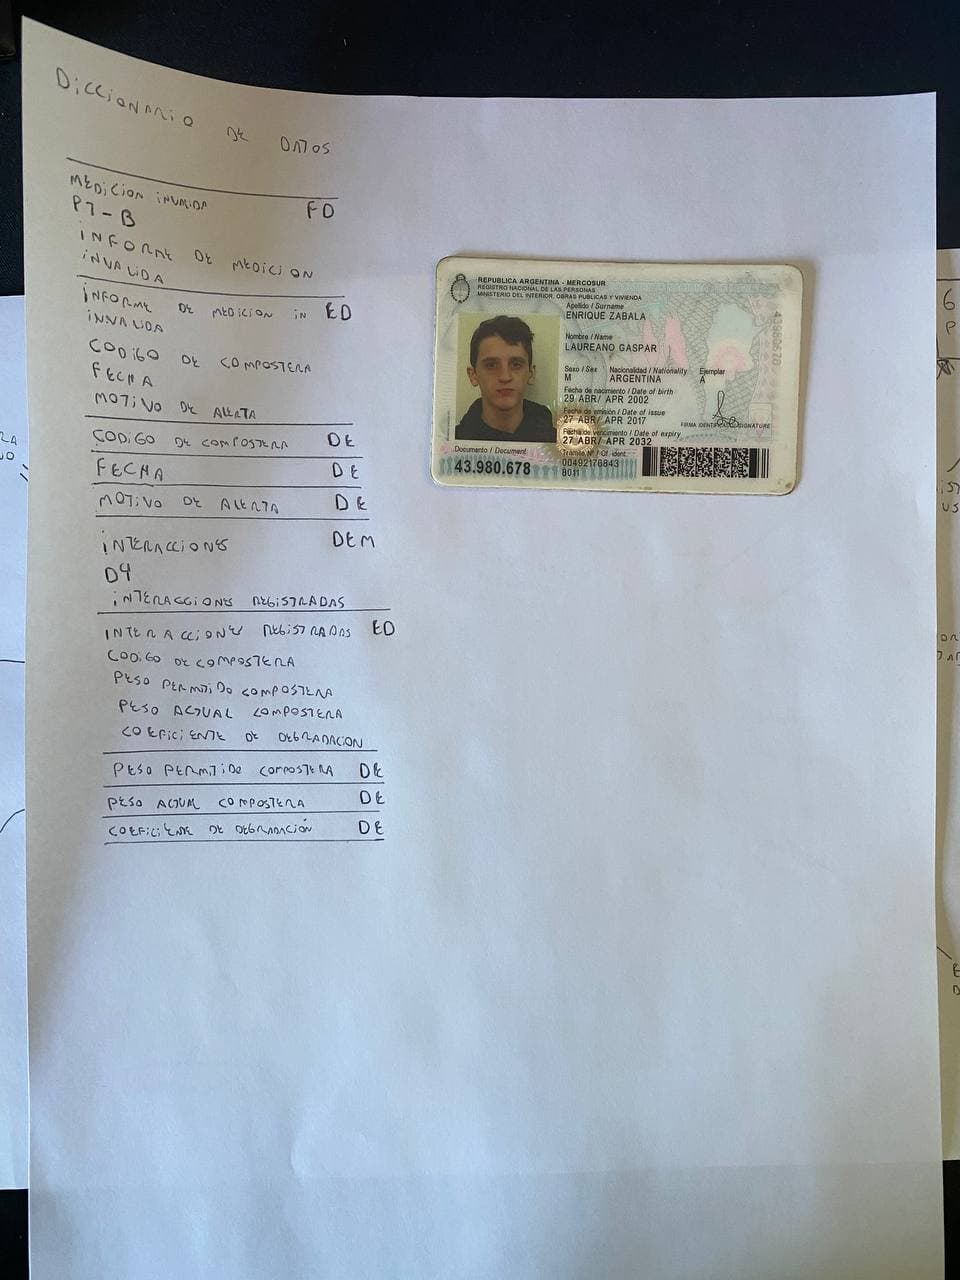 DiCCiONARiO DE DATOS
MEDiCiON iNVALIDA FD
P7-B
iNFORME DE MEDiCiON
iNVALiDA
iNFORME DE MEDiCiON IN ED
iNVALiDA
CODiGO DE COMPOSTERA
FECHA
MOTiVO DE ALERTA
CODiGO DE COMPOSTERA DE
FECHA DE
MOTiVO DE ALERTA DE
iNTERACCIONES DEM
D4
iNTERACCIONES REGiSTRADAS
INTERACCIONES REGiSTRADAS ED
CODiGO DE COMPOSTERA
PESO PERMiTiDO COMPOSTERA
PESO ACTUAL COMPOSTERA
COEFiCiENTE DE DEGRADACION
PESO PERMiTiDO COMPOSTERA DE
PESO ACTUAL COMPOSTERA DE
COEFiCiENTE DE DEGRADACIÓN DE
REPUBLICA ARGENTINA - MERCOSUR
REGISTRO NACIONAL DE LAS PERSONAS
MINISTERIO DEL INTERIOR, OBRAS PUBLICAS Y VIVIENDA
Apellido / Surname
ENRIQUE ZABALA
Nombre / Name
LAUREANO GASPAR
Sexo / Sex Nacionalidad / Nationality Ejemplar
M ARGENTINA A
Fecha de nacimiento / Date of birth
29 ABR/ APR 2002
Fecha de emisión / Date of issue
27 ABR/ APR 2017
FIRMA IDENTIFICADO/SIGNATURE
Fecha de vencimiento / Date of expiry
27 ABR/ APR 2032
Documento / Document Trámite Nº / Of. ident.
43.980.678 00492176843
8011
6
P